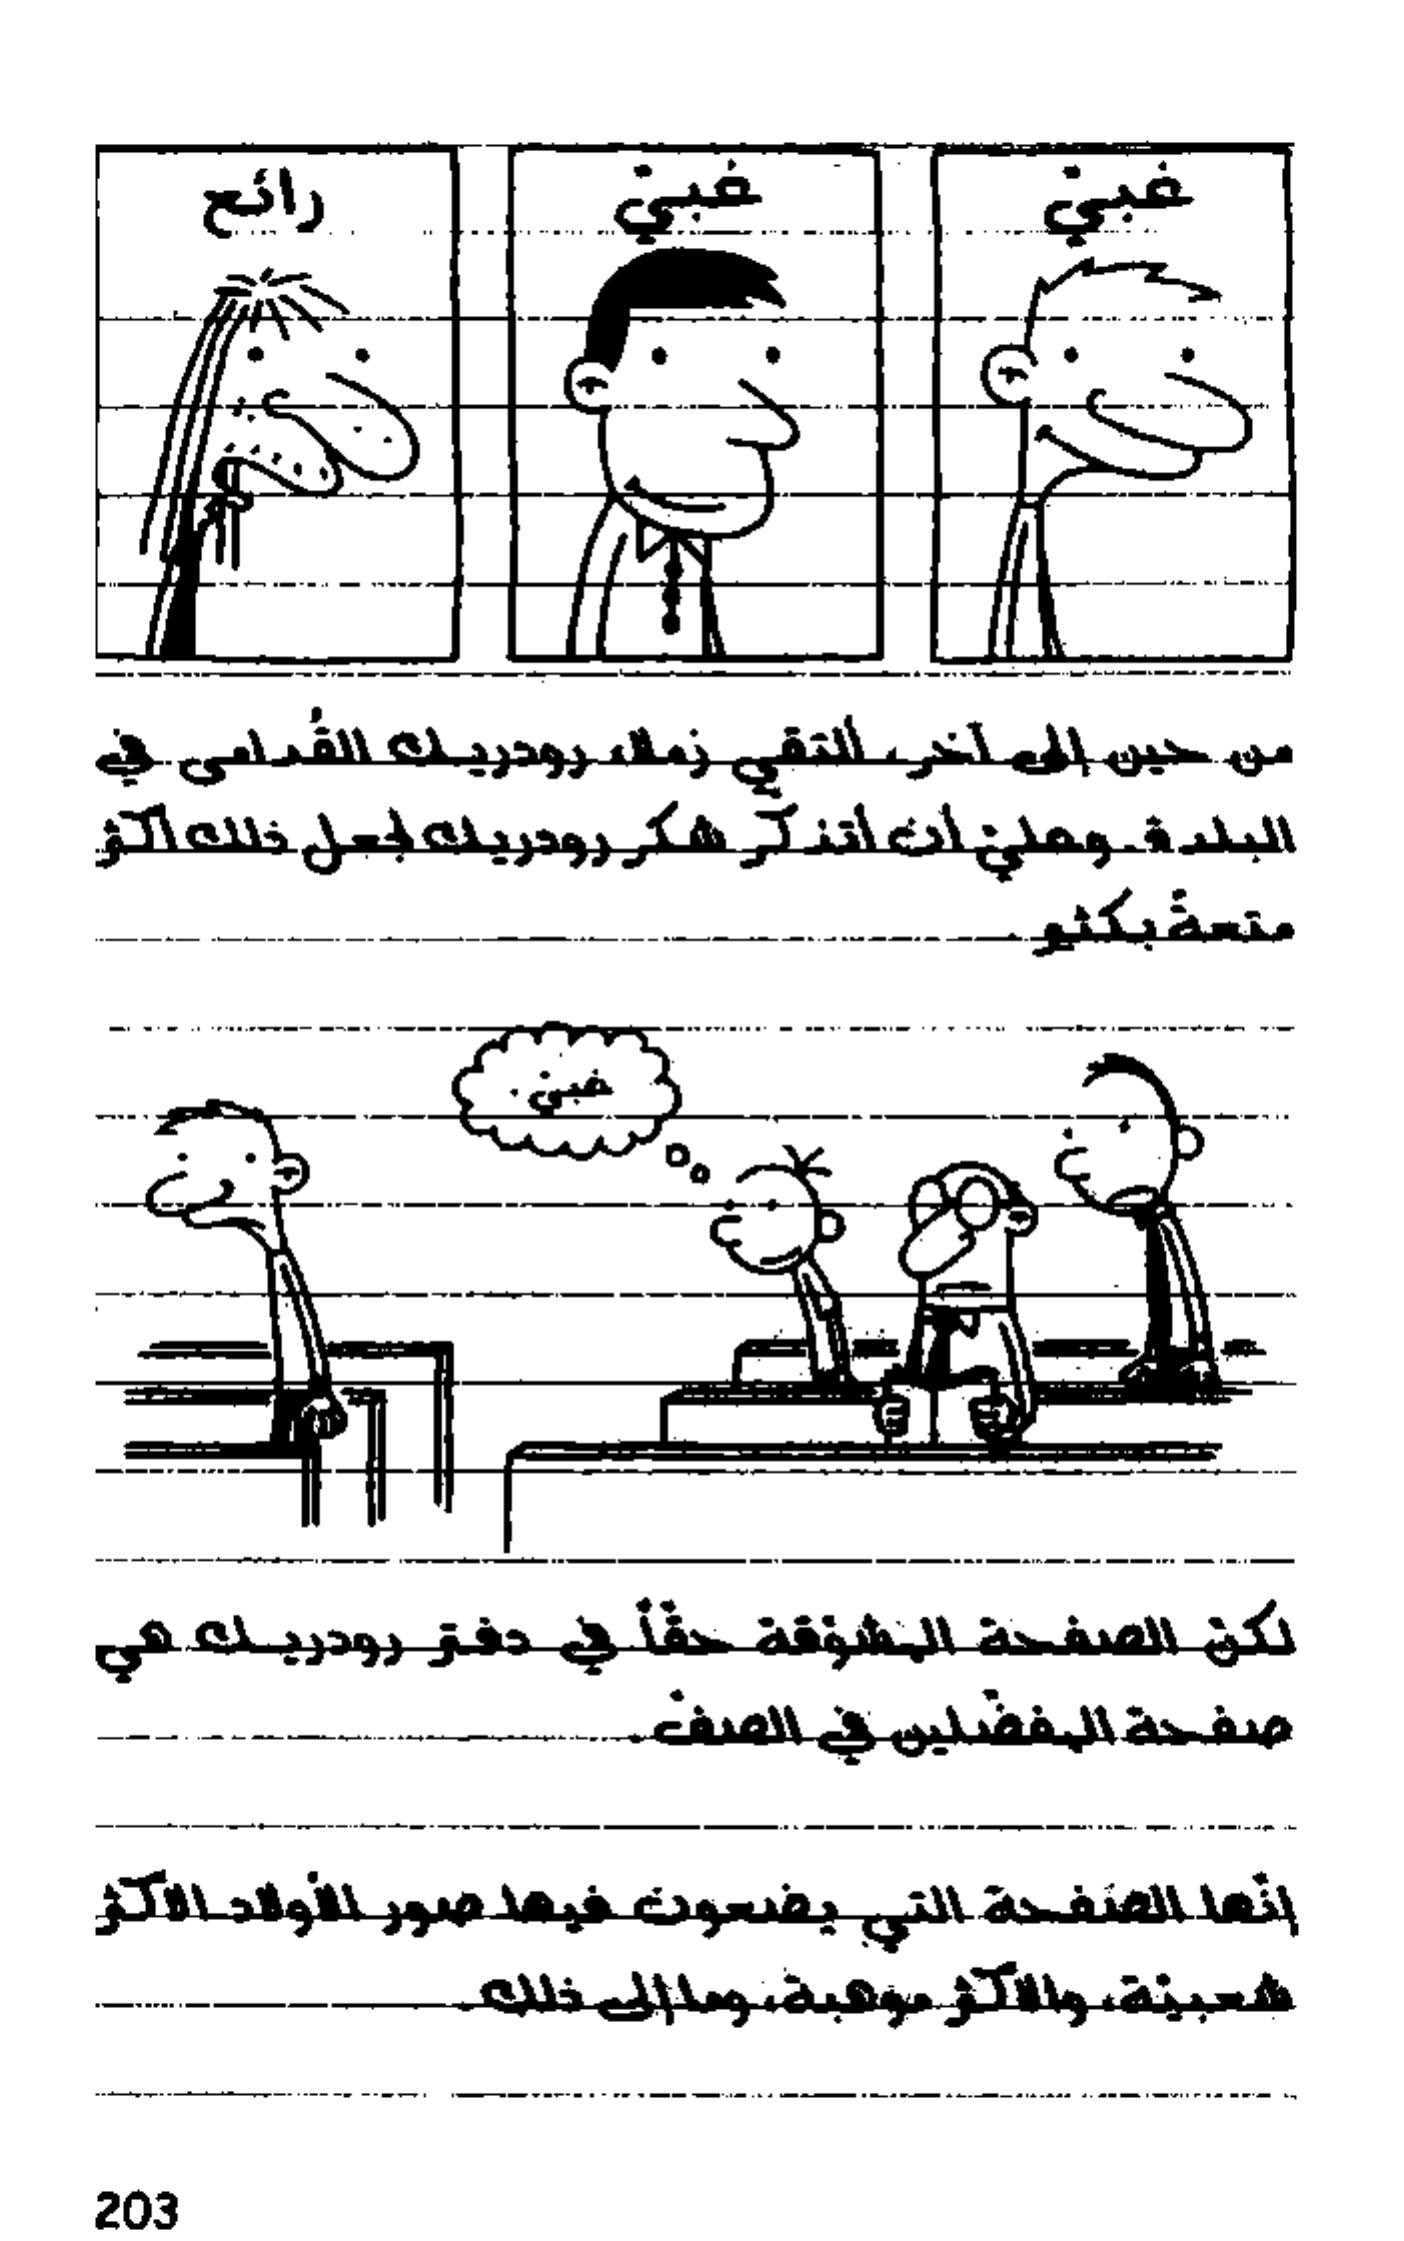 غبيّ
غبيّ
رائع
من حين إلى آخر، ألتقي زملاء رودريك القُدامى في
البلدة. وعليّ أن أتذكّر شكر رودريك لجعل ذلك أكثر
متعةً بكثير.
غبيّ.
لكنّ الصفحة المشوّقة حقّاً في دفتر رودريك هي
صفحة المفضّلين في الصفّ.
إنّها الصفحة التي يضعون فيها صور الأولاد الأكثر
شعبيّة، والأكثر موهبة، وما إلى ذلك.
203